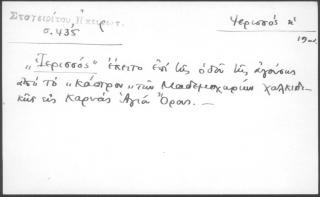 Στατειρίτου, Ηπειρωτ.
σ. 435
Ψερισσός κ
19
"Ψερισσός" έκειτο επί της οδού της αγούσης
από το "κάστρον" των Μαδεμοχωρίων χαλκιδι-
κής εις Καρυάς Αγίου Όρους. —